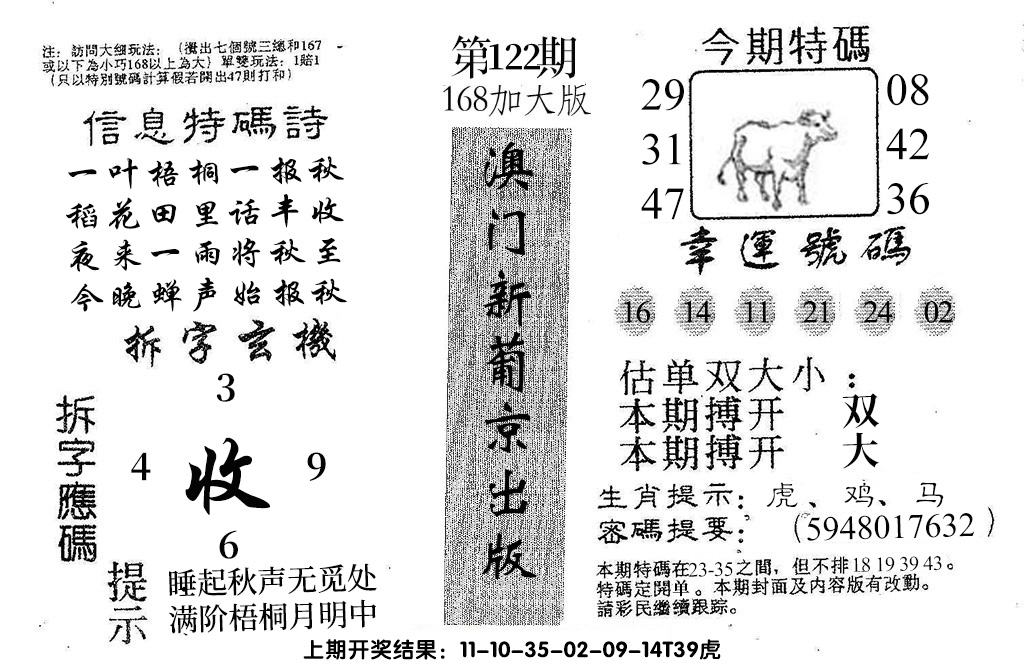 注：訪問大细玩法：(攪出七個號三總和167
或以下為小巧168以上為大）單雙玩法：1賠1
（只以特別號碼計算假若開出47則打和）
信息特碼詩
一叶梧桐一报秋
稻花田里话丰收
夜来一雨将秋至
今晚蝉声始报秋
拆字玄機
拆字應碼
3
4 收 9
6
提示
睡起秋声无觅处
满阶梧桐月明中
第122期
168加大版
澳门新葡京出版
今期特碼
29 08
31 42
47 36
幸運號碼
16 14 11 21 24 02
估单双大小：
本期搏开 双
本期搏开 大
生肖提示：虎、鸡、马
密碼提要：（5948017632）
本期特碼在23-35之間，但不排18 19 39 43。
特碼定開单。本期封面及内容版有改動。
請彩民繼續跟踪。
上期开奖结果：11-10-35-02-09-14T39虎